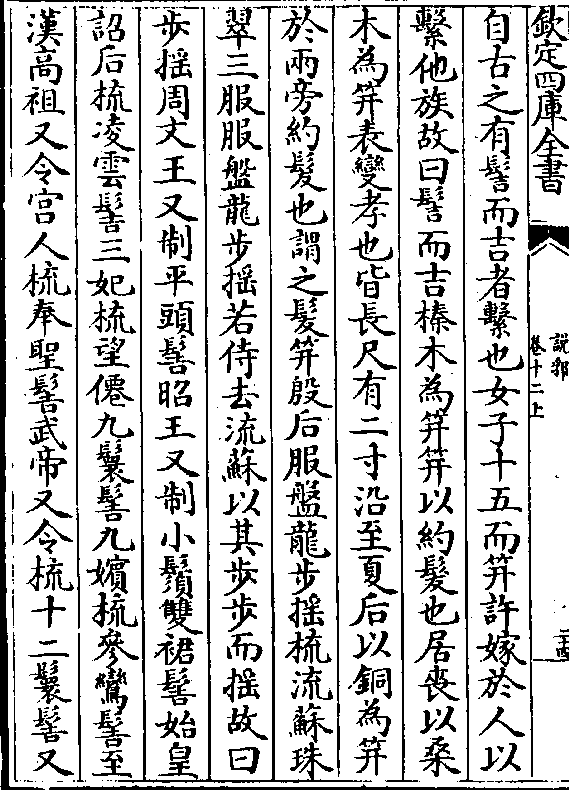 欽定四庫全書
説郛
卷十二上
二十四
自古之有髻而吉者繫也女子十五而笄許嫁於人以
繫他族故曰髻而吉榛木為笄笄以約髮也居喪以桑
木為笄表變孝也皆長尺有二寸沿至夏后以銅為笄
於兩旁約髮也謂之髮笄殷后服盤龍步揺梳流蘇珠
翠三服服盤龍步揺若侍去流蘇以其步步而揺故曰
步揺周文王又制平頭髻昭王又制小鬚雙裙髻始皇
詔后梳凌雲髻三妃梳望僊九鬟髻九嬪梳參鸞髻至
漢高祖又令宫人梳奉聖髻武帝又令梳十二鬟髻又